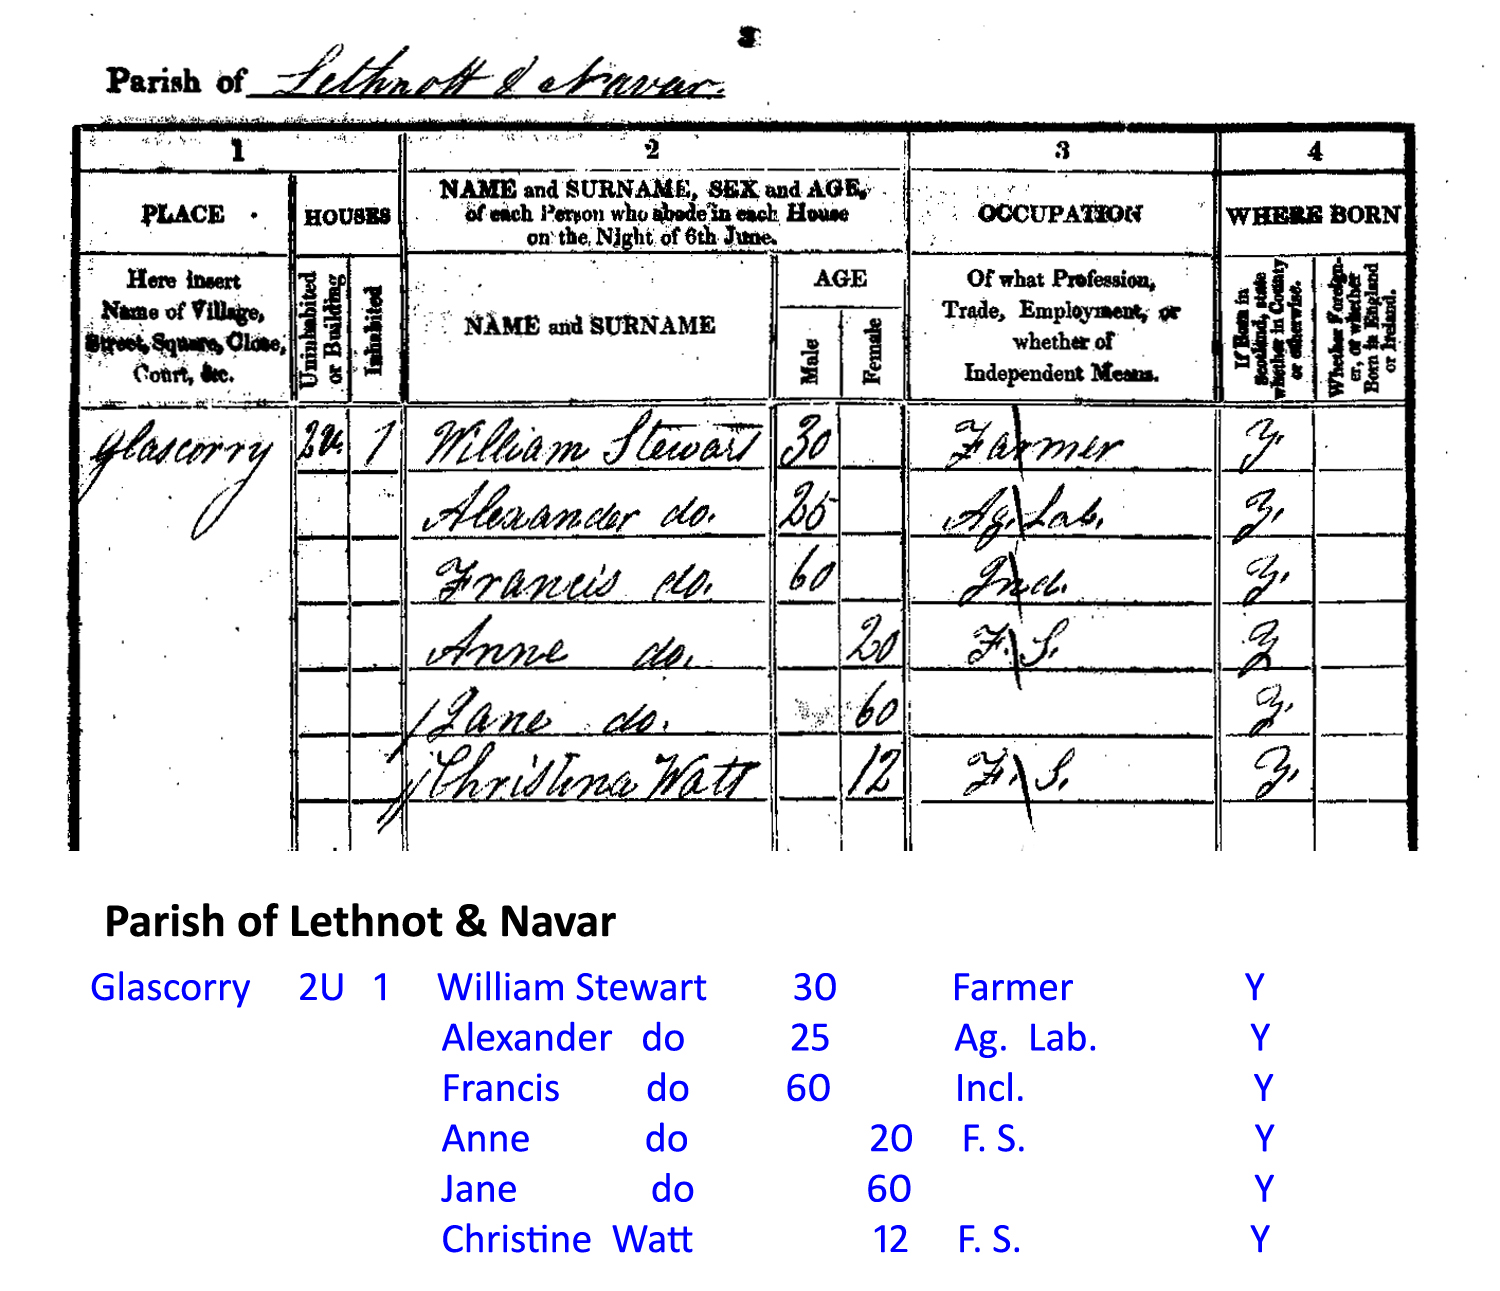 3
Parish of Lethnott & Navar.
1 2 3 4
PLACE HOUSES NAME and SURNAME, SEX and AGE, of each Person who abode in each House on the Night of 6th June. OCCUPATION WHERE BORN
Here insert Name of Village, Street, Square, Close, Court, &c.
Uninhabited or Building
Inhabited
NAME and SURNAME
AGE
Male
Female
Of what Profession, Trade, Employment, or whether of Independent Means.
If Born in Scotland, state whether in County or otherwise.
Whether Foreigner, or whether Born in England or Ireland.
Glascorry 2U. 1 William Stewart 30 Farmer Y.
Alexander do. 25 Ag. Lab. Y.
Francis do. 60 Ind. Y.
Anne do. 20 F. S. Y
Jane do. 60 Y.
Christina Watt 12 F. S. Y.
Parish of Lethnot & Navar
Glascorry 2U 1 William Stewart 30 Farmer Y
Alexander do 25 Ag. Lab. Y
Francis do 60 Incl. Y
Anne do 20 F. S. Y
Jane do 60 Y
Christine Watt 12 F. S. Y